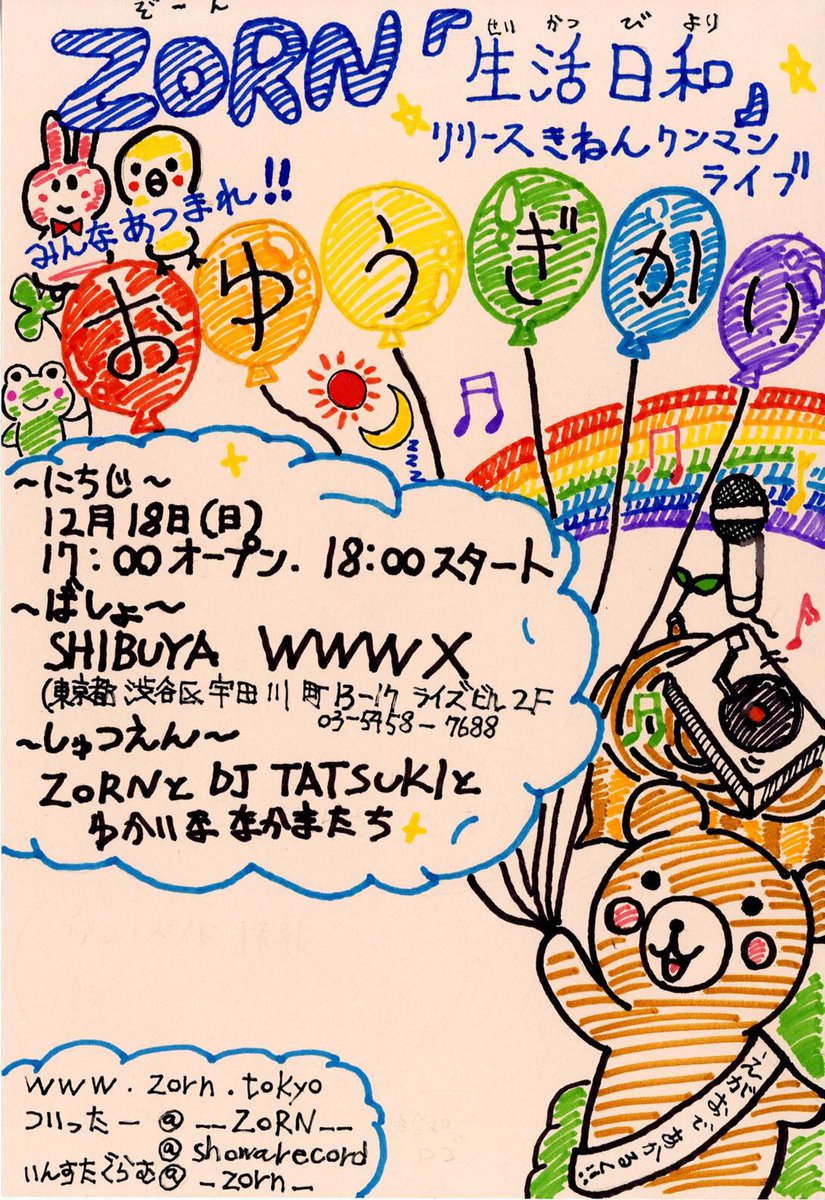 ぞーん
ZORN
せい かつ び より
『生活日和』
リリースきねんワンマン
ライブ
みんなあつまれ!!
おゆうぎかい
zzz
～にちじ～
12月18日(日)
17:00オープン. 18:00スタート
～ばしょ～
SHIBUYA WWW X
(東京都渋谷区宇田川町13-17 ライズビル2F
03-5458-7688
～しゅつえん～
ZORNとDJ TATSUKIと
ゆかいななかまたち
えがおであかるく!!
www.zorn.tokyo
ついったー@__ZORN__
@showarecord
いんすたぐらむ@_zorn_